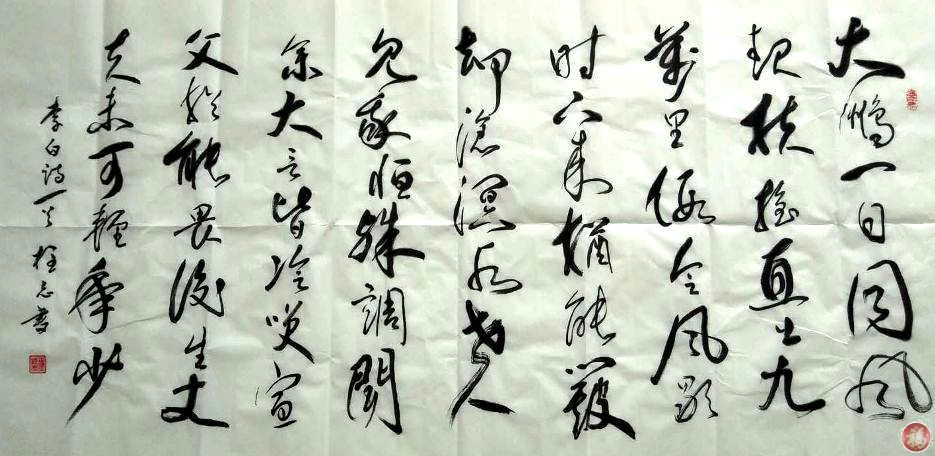 大鹏一日同风
起扶摇直上九
萬里假令风歇
时下来猶能簸
却滄溟水世人
见我恒殊調聞
余大言皆冷笑宣
父猶能畏後生丈
夫未可輕年少
李白诗一首 志書
福